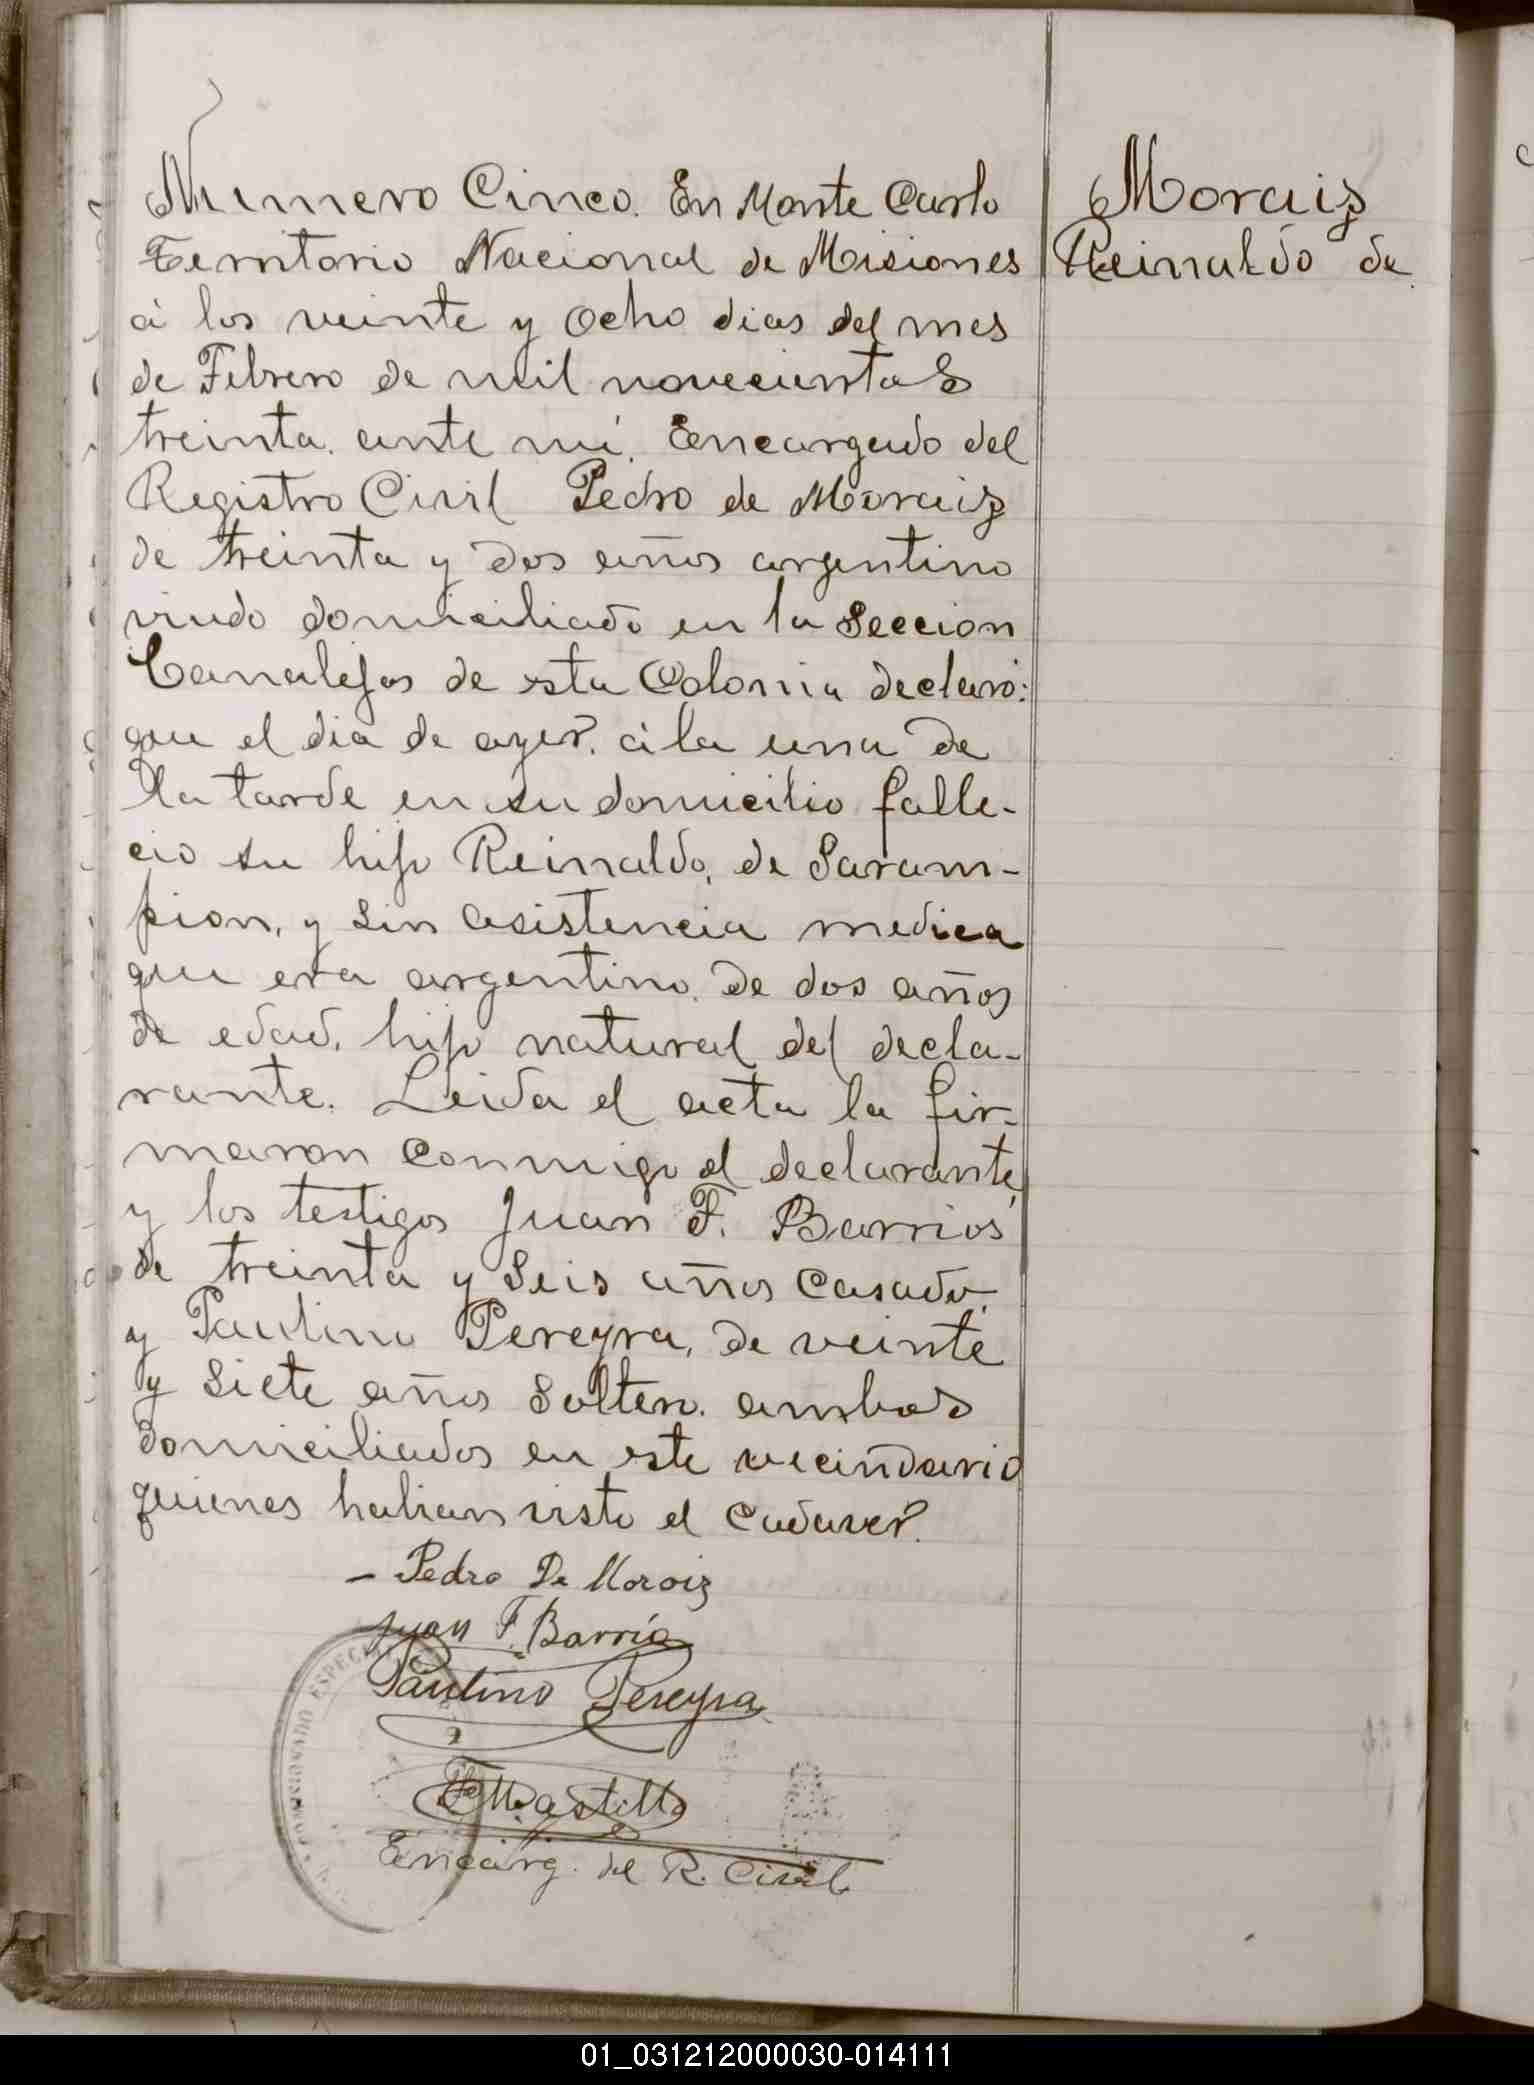 Numero Cinco. En Monte Carlo
Territorio Nacional de Misiones
á los veinte y ocho dias del mes
de Febrero de mil novecientos
treinta. ante mí. Encargado del
Registro Civil Pedro de Moraiz
de treinta y dos años argentino
viudo domiciliado en la Seccion
Canalejas de esta Colonia declaró:
que el dia de ayer. á la una de
la tarde en su domicilio falle-
cio su hijo Reinaldo, de Saram-
pion, y sin asistencia medica
que era argentino. de dos años
de edad. hijo natural del decla-
rante. Leida el acta la fir-
maron conmigo el declarante,
y los testigos Juan F. Barrios
de treinta y seis años casado,
y Paulino Pereyra, de veinte
y siete años soltero. ambos
domiciliados en este vecindario
quienes habian visto el cadaver.
Moraiz
Reinaldo de
- Pedro De Moroiz
Juan F. Barrio
Paulino Pereyra
COMISIONADO ESPECIAL
Encarg. del R. Civil
01_031212000030-014111